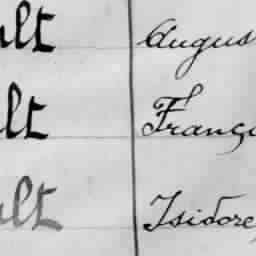 ult Augus
ult Franço
ult Isidore,